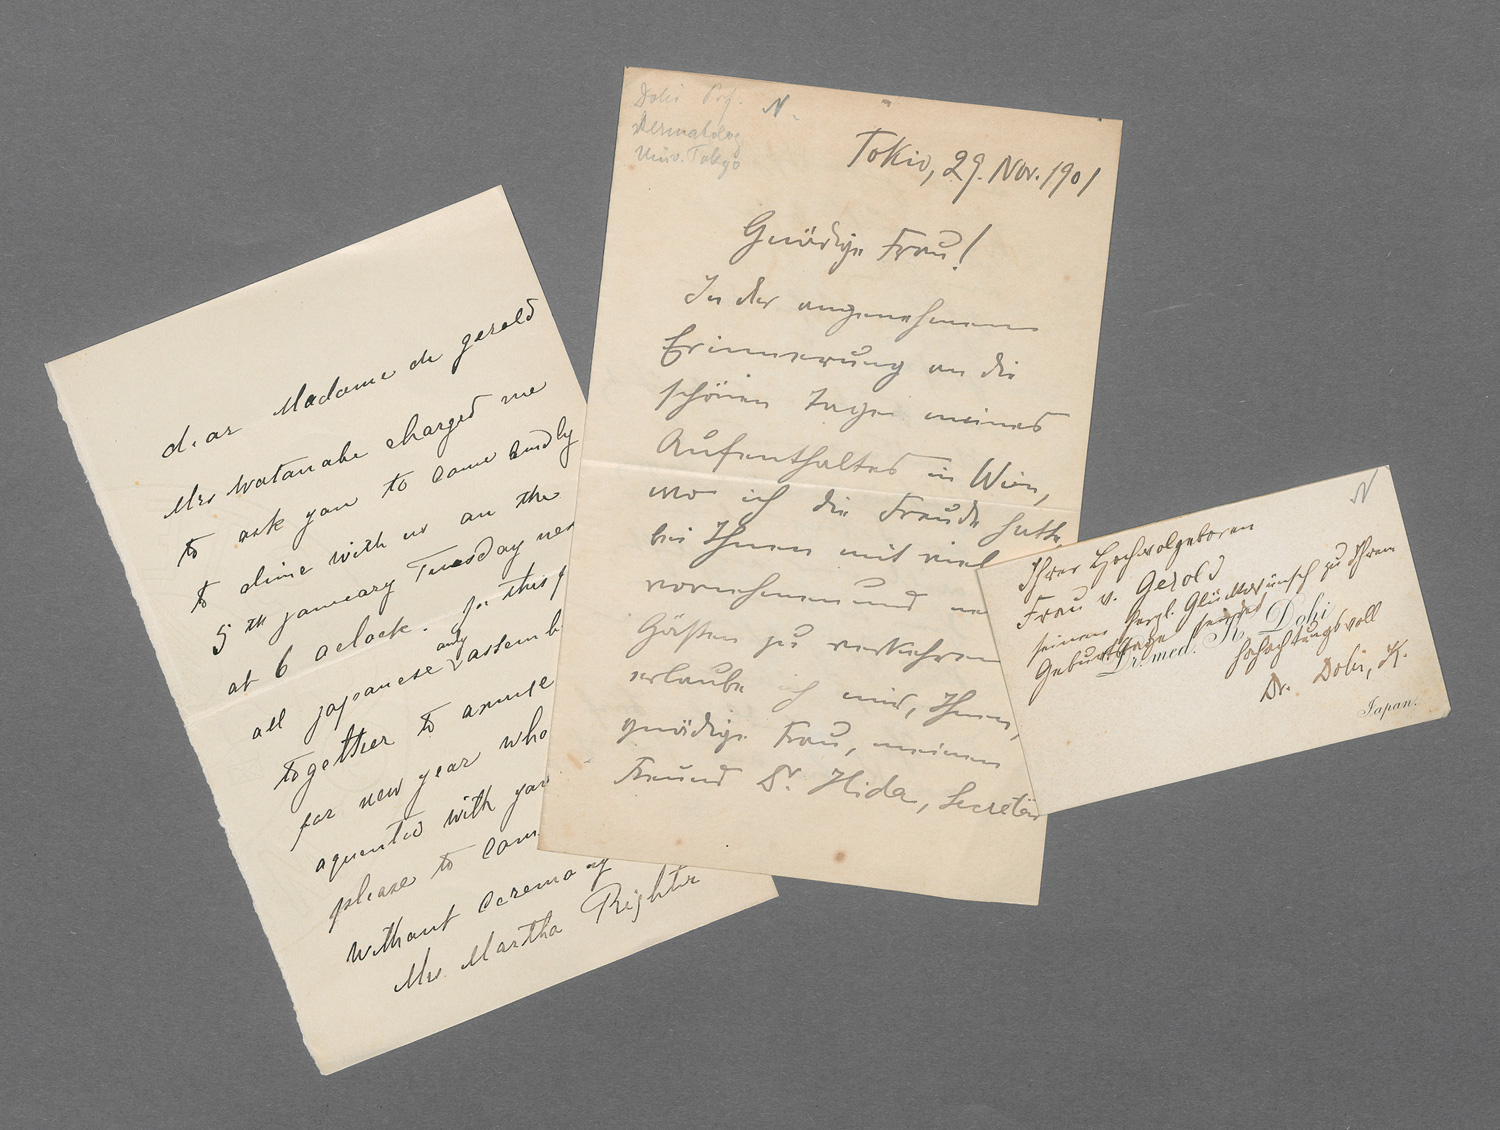 dear Madame de gerold
Mrs Watanabe charged me
to ask you to come kindly
to dine with us on the
5th january Tuesday nex
at 6 oclock. In this
all japanese assembl
together to amuse
for new year who
aquented with you
please to com
without ceremony
Mrs. Martha Righter
Dohi Prof. N.
Dermatolog
Univ. Tokyo
Tokio, 29. Nov. 1901
Gnädige Frau!
In der angenehmen
Erinnerung an die
schönen Tage meines
Aufenthaltes in Wien,
wo ich die Freude hatte,
bei Ihnen mit viel
vornehmen und
Gästen zu verkehren
erlaube ich mir, Ihnen,
gnädige Frau, meinen
Freund Dr. Hida, Secretär
N
Ihrer Hochwolgeboren
Frau v. Gerold
seinen herzl. Glückwünsch zu Ihrem
Geburtstage sendet
Dr. med. K. Dohi
hochachtungsvoll
Dr. Dohi, K.
Japan.